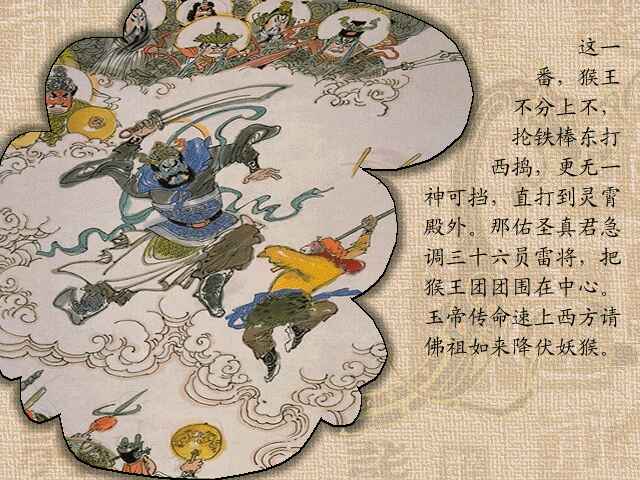 这一
番，猴王
不分上不，
抡铁棒东打
西捣，更无一
神可挡，直打到灵霄
殿外。那佑圣真君急
调三十六员雷将，把
猴王团团围在中心。
玉帝传命速上西方请
佛祖如来降伏妖猴。